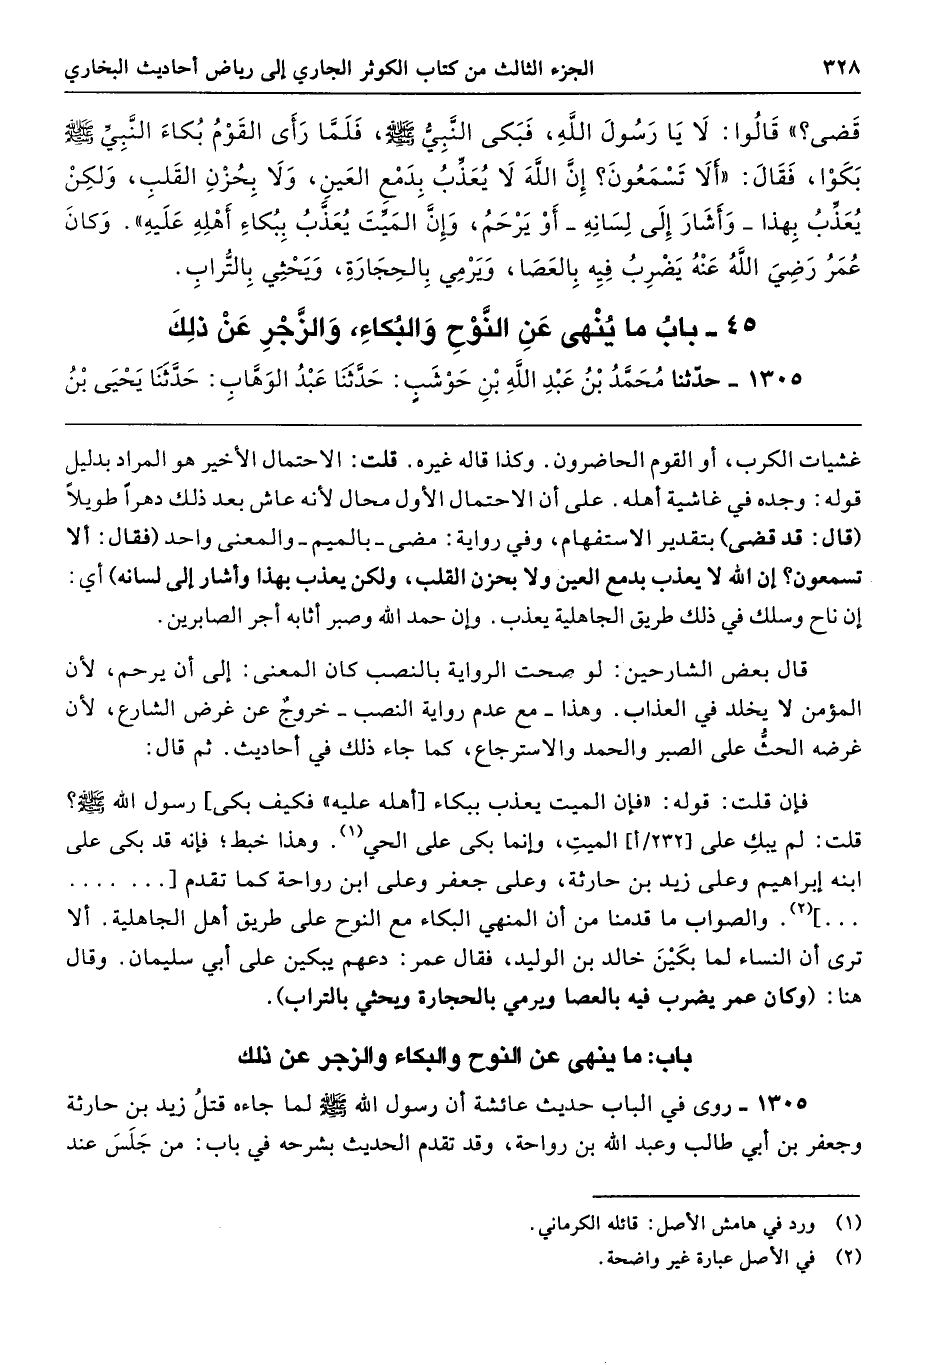 ٣٢٨ الجزء الثالث من كتاب الكوثر الجاري إلى رياض أحاديث البخاري
قَضى؟» قَالُوا: لَا يَا رَسُولَ اللَّهِ، فَبَكى النَّبِيُّ ﷺ، فَلَمَّا رَأَى القَوْمُ بُكاءَ النَّبِيِّ ﷺ
بَكَوْا، فَقَالَ: «أَلَا تَسْمَعُونَ؟ إِنَّ اللَّهَ لَا يُعَذِّبُ بِدَمْعِ العَينِ، وَلَا بِحُزْنِ القَلبِ، وَلَكِنْ
يُعَذِّبُ بِهذا - وَأَشَارَ إِلَى لِسَانِهِ - أَوْ يَرْحَمُ، وَإِنَّ المَيِّتَ يُعَذَّبُ بِبُكاءِ أَهْلِهِ عَلَيهِ». وَكانَ
عُمَرُ رَضِيَ اللَّهُ عَنْهُ يَضْرِبُ فِيهِ بِالعَصَا، وَيَرْمِي بِالحِجَارَةِ، وَيَحْثِي بِالتُّرابِ.
٤٥ - بابُ ما يُنْهى عَنِ النَّوْحِ وَالبُكاءِ، وَالزَّجْرِ عَنْ ذلِكَ
١٣٠٥ - حدّثنا مُحَمَّدُ بْنُ عَبْدِ اللَّهِ بْنِ حَوْشَبٍ: حَدَّثَنَا عَبْدُ الوَهَّابِ: حَدَّثَنَا يَحْيَى بْنُ
غشيات الكرب، أو القوم الحاضرون. وكذا قاله غيره. قلت: الاحتمال الأخير هو المراد بدليل
قوله: وجده في غاشية أهله. على أن الاحتمال الأول محال لأنه عاش بعد ذلك دهراً طويلاً
(قال: قد قضى) بتقدير الاستفهام، وفي رواية: مضى - بالميم - والمعنى واحد (فقال: ألا
تسمعون؟ إن الله لا يعذب بدمع العين ولا بحزن القلب، ولكن يعذب بهذا وأشار إلى لسانه) أي:
إن ناح وسلك في ذلك طريق الجاهلية يعذب. وإن حمد الله وصبر أثابه أجر الصابرين.
قال بعض الشارحين: لو صحت الرواية بالنصب كان المعنى: إلى أن يرحم، لأن
المؤمن لا يخلد في العذاب. وهذا - مع عدم رواية النصب - خروجٌ عن غرض الشارع، لأن
غرضه الحثُّ على الصبر والحمد والاسترجاع، كما جاء ذلك في أحاديث. ثم قال:
فإن قلت: قوله: «فإن الميت يعذب ببكاء [أهله عليه» فكيف بكى] رسول الله ﷺ؟
قلت: لم يبكِ على [٢٣٢/أ] الميتِ، وإنما بكى على الحي(١). وهذا خبط؛ فإنه قد بكى على
ابنه إبراهيم وعلى زيد بن حارثة، وعلى جعفر وعلى ابن رواحة كما تقدم [... ....
...](٢). والصواب ما قدمنا من أن المنهي البكاء مع النوح على طريق أهل الجاهلية. ألا
ترى أن النساء لما بكَيْنَ خالد بن الوليد، فقال عمر: دعهم يبكين على أبي سليمان. وقال
هنا: (وكان عمر يضرب فيه بالعصا ويرمي بالحجارة ويحثي بالتراب).
باب: ما ينهى عن النوح والبكاء والزجر عن ذلك
١٣٠٥ - روى في الباب حديث عائشة أن رسول الله ﷺ لما جاءه قتلُ زيد بن حارثة
وجعفر بن أبي طالب وعبد الله بن رواحة، وقد تقدم الحديث بشرحه في باب: من جَلَسَ عند
(١) ورد في هامش الأصل: قائله الكرماني.
(٢) في الأصل عبارة غير واضحة.